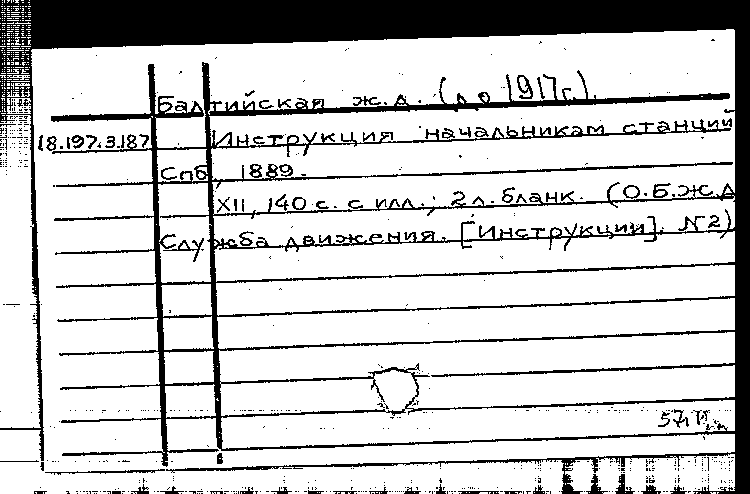 Балтийская ж.д. (до 1917г.).
18.197.3.187 Инструкция начальникам станций
Спб, 1889.
XII, 140 с. с илл.; 2 л. бланк. (О.Б.ж.д
Служба движения. [Инструкции]. N2)